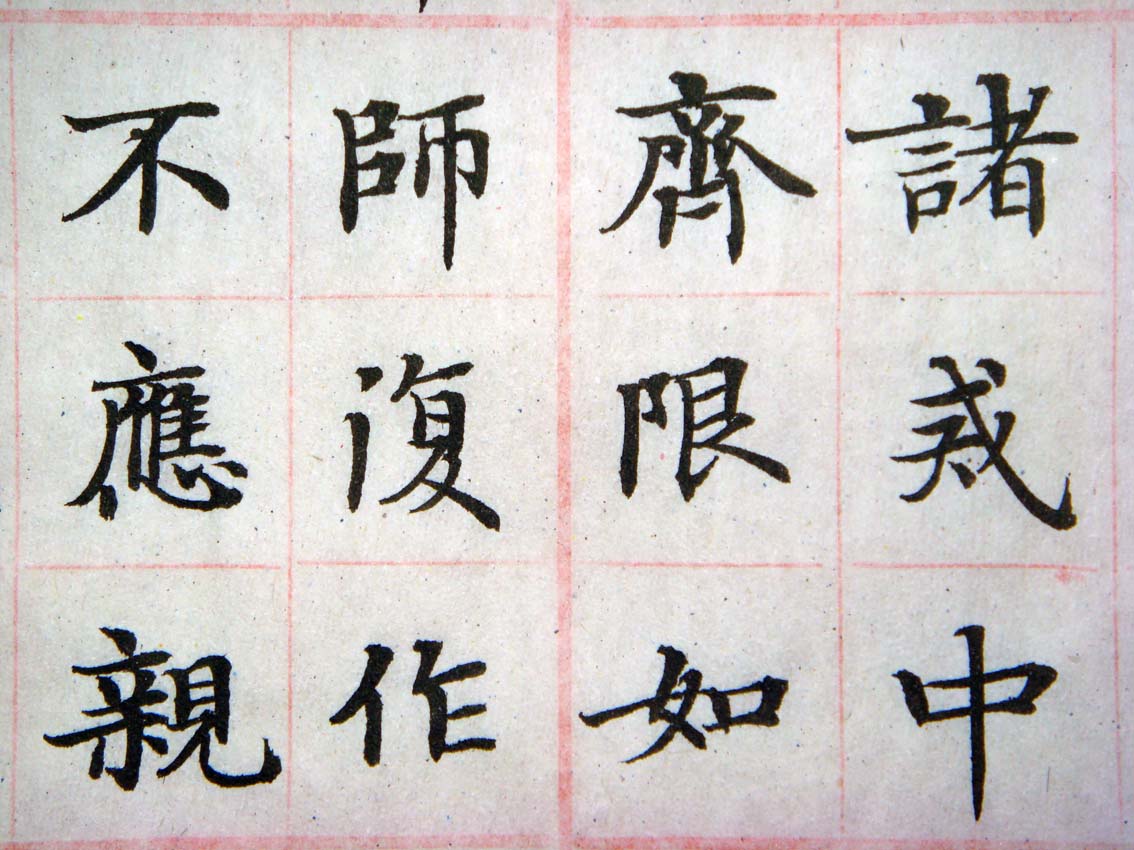 諸戒中
齊限如
師復作
不應親